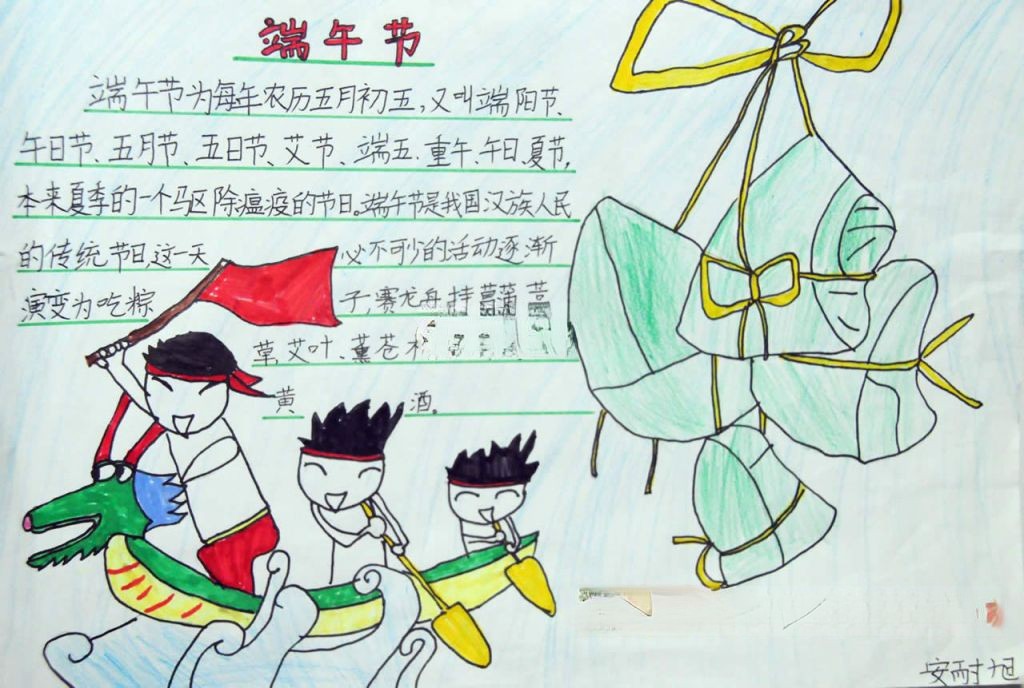 端午节
端午节为每年农历五月初五,又叫端阳节、
午日节、五月节、五日节、艾节、端五、重午、午日、夏节,
本来夏季的一个驱除瘟疫的节日。端午节是我国汉族人民
的传统节日,这一天必不可少的活动逐渐
演变为吃粽子,赛龙舟,挂菖蒲
草,艾叶、薰苍
黄酒。
安耐旭